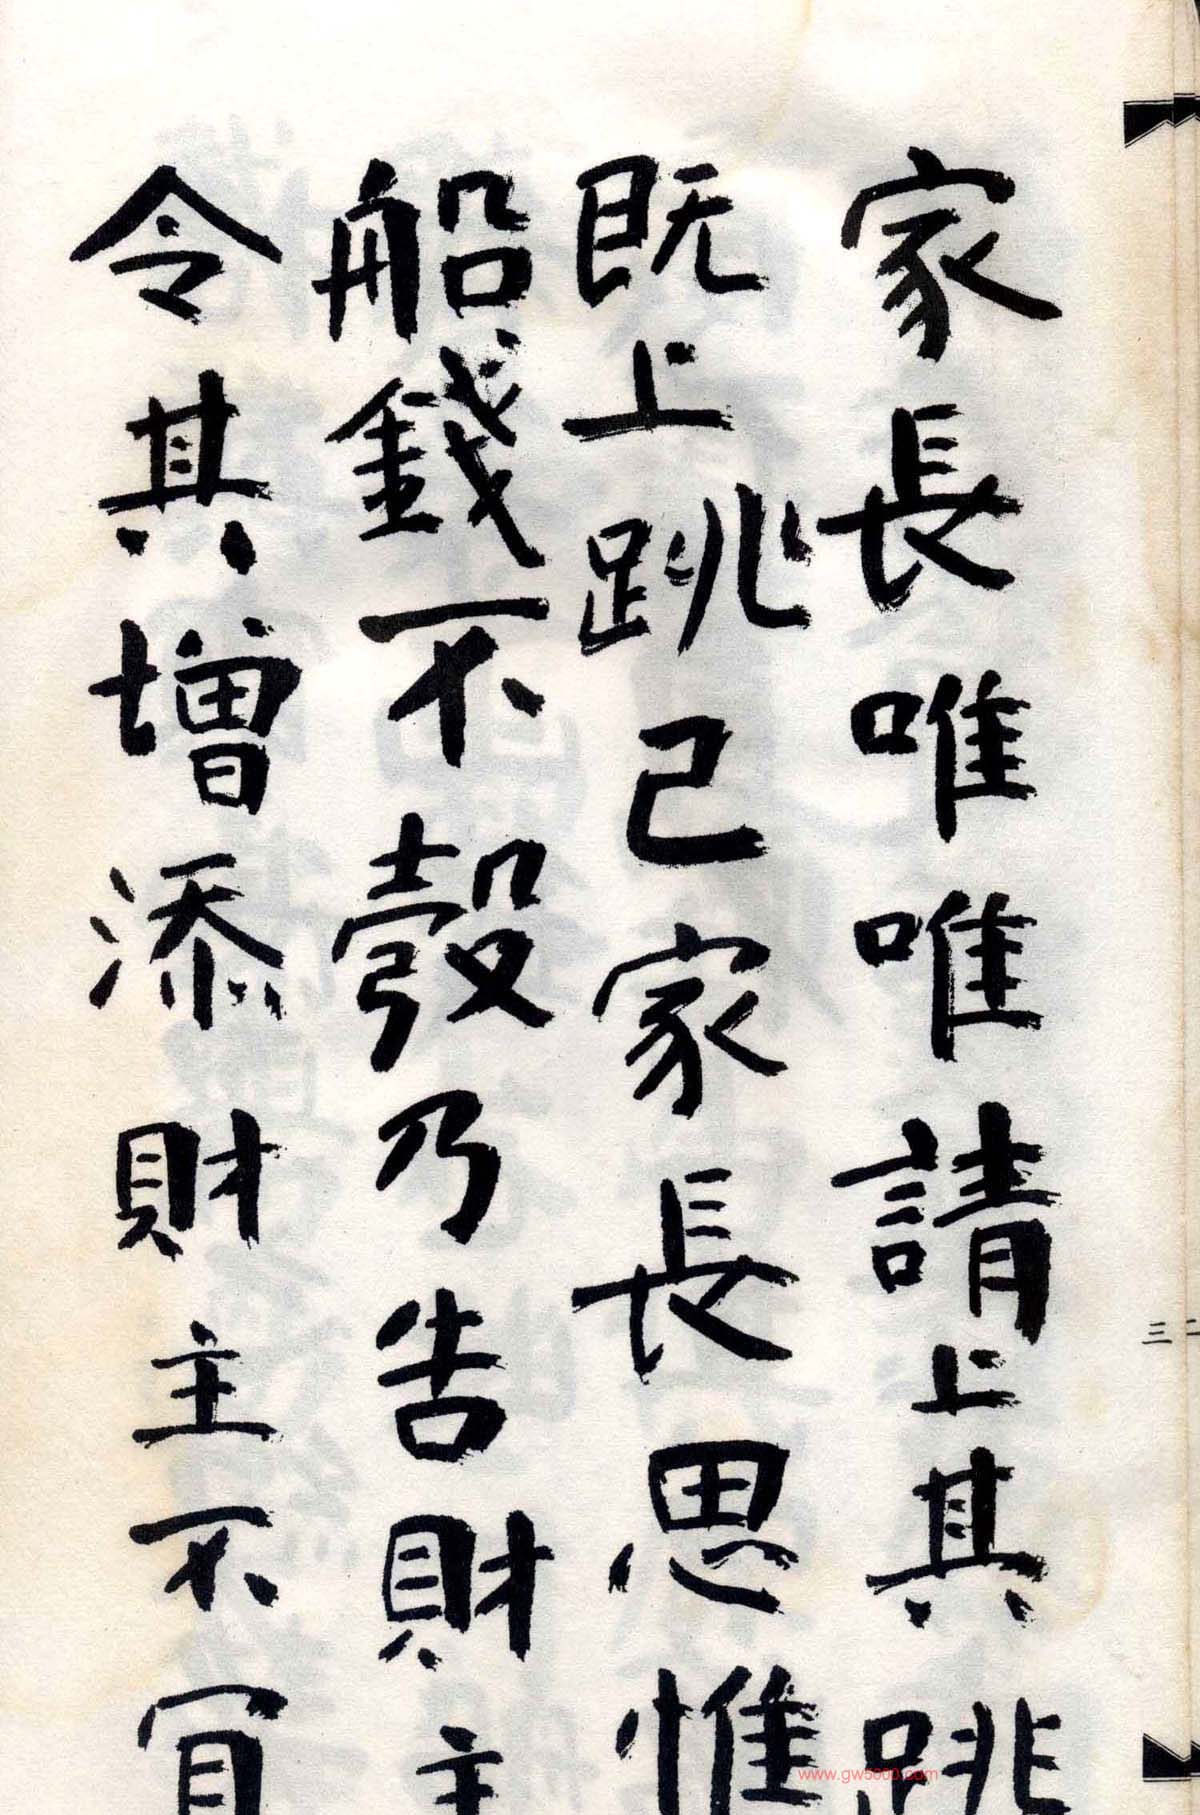 家長唯唯請上其跳
既上跳已家長思惟
船錢不彀乃告財主
令其增添財主不
三
www.gw5000.com